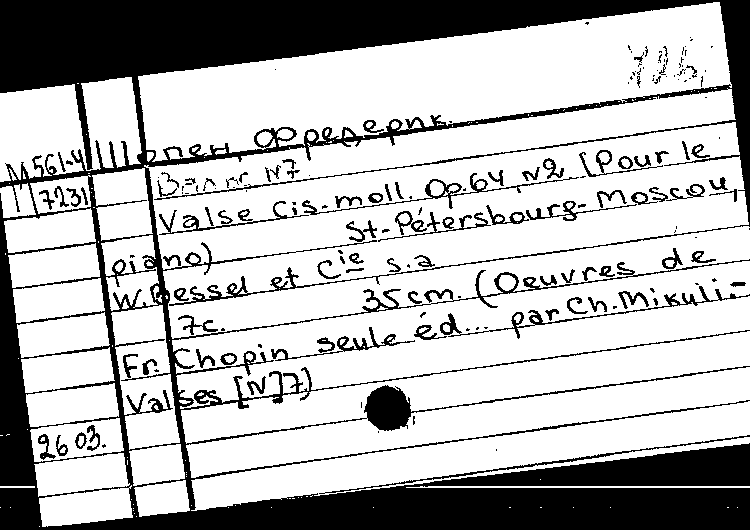 726,
М561-4
П7231
Шопен, Фредерик.
Вальс №7
Valse Cis-moll. Op.64, №2 [Pour le
piano) St-Pétersbourg-Moscou,
W. Bessel et Cie, s.a
7c. 35cm. (Oeuvres de
Fr. Chopin seule éd... par Ch. Mikuli.-
Valses [N]7.)
2603.